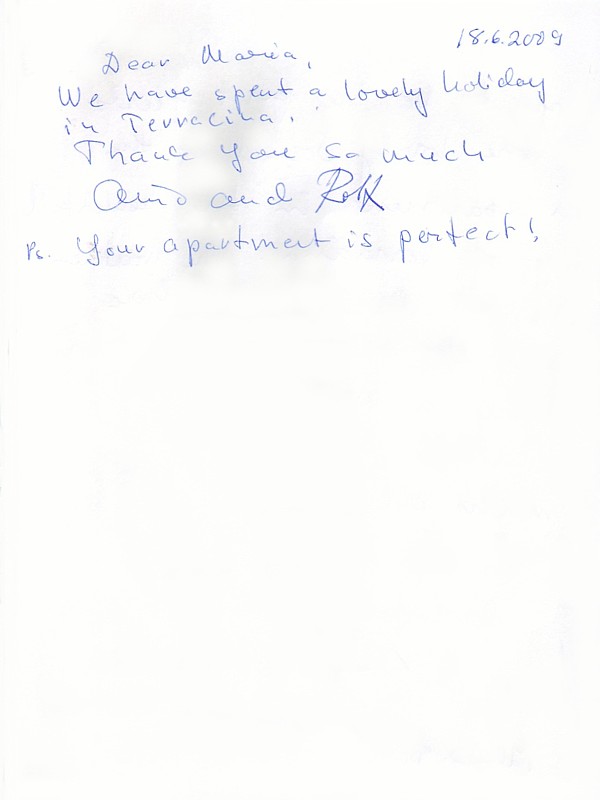 18.6.2009
Dear Maria,
We have spent a lovely holiday
in Terracina.
Thank you so much
and Rolf
Ps. Your apartment is perfect!